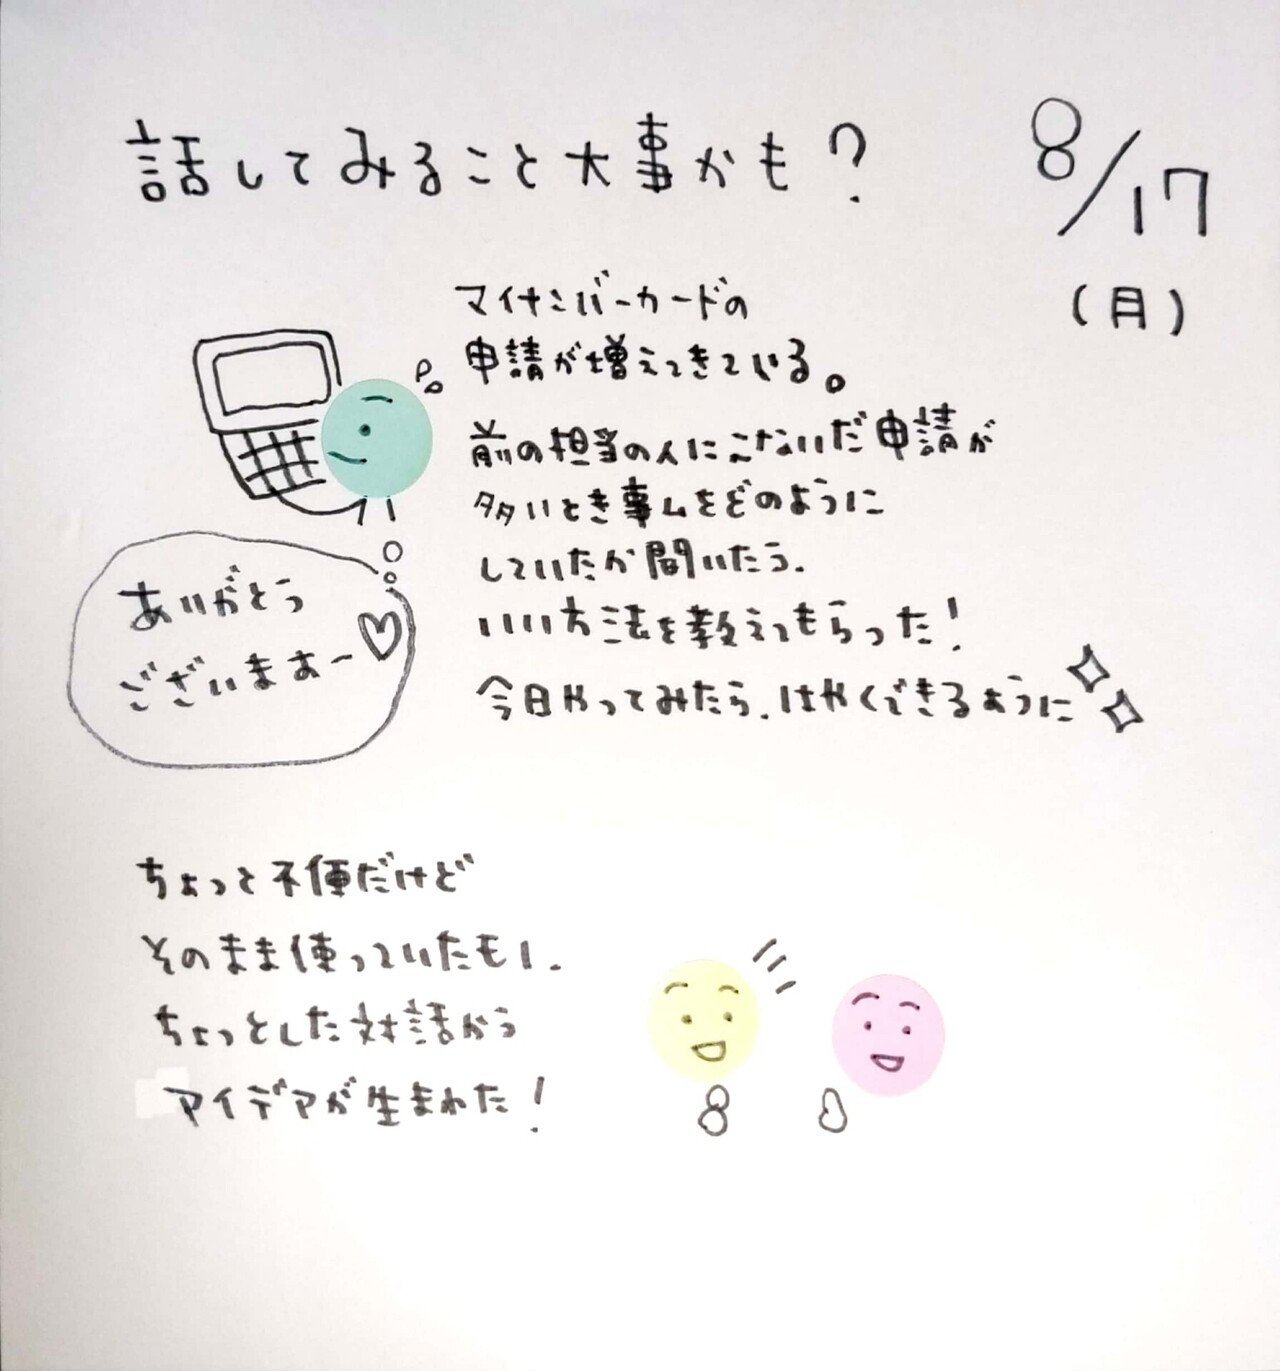 話してみること大事かも?
8/17
(月)
マイナンバーカードの
申請が増えてきている。
前の担当の人にこないだ申請が
多いとき事ムをどのように
していたか聞いたら.
いい方法を教えてもらった!
今日やってみたら.はやくできるように
ありがとう
ございまぁー♡
ちょっと不便だけど
そのまま使っていたモノ.
ちょっとした対話から
アイデアが生まれた!